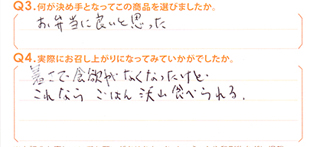 Q3.何が決め手となってこの商品を選びましたか。
お弁当に良いと思った
Q4.実際にお召し上がりになってみていかがでしたか。
暑さで食欲がなくなったけど
これなら ごはん沢山食べられる。